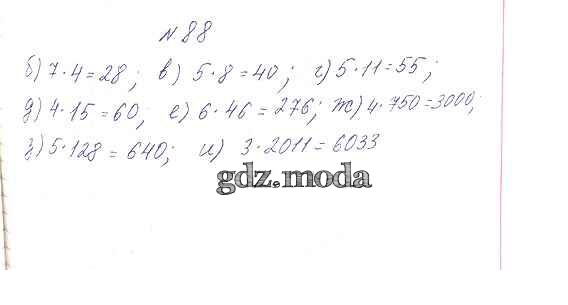 № 88
б) 7·4=28; в) 5·8=40; г) 5·11=55;
д) 4·15=60; е) 6·46=276; ж) 4·750=3000;
з) 5·128=640; и) 3·2011=6033
gdz.moda